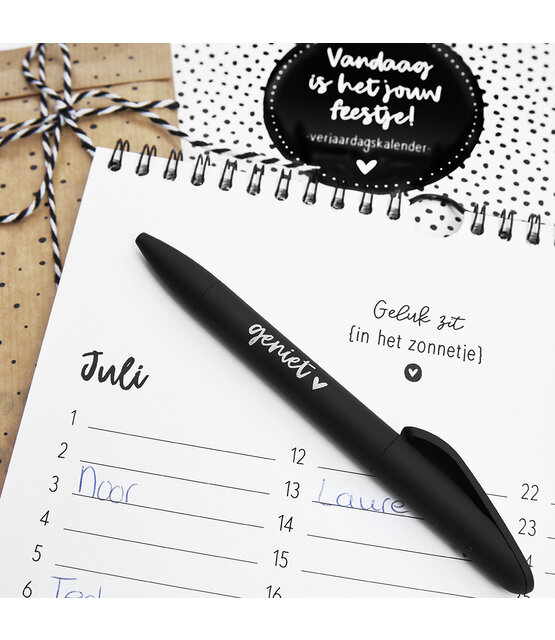 Vandaag
is het jouw
feestje!
-verjaardagskalender-
Geluk zit
{in het zonnetje}
geniet
Juli
1
2
3 Noor
4
5
6
12
13
14
15
16
22
23
24